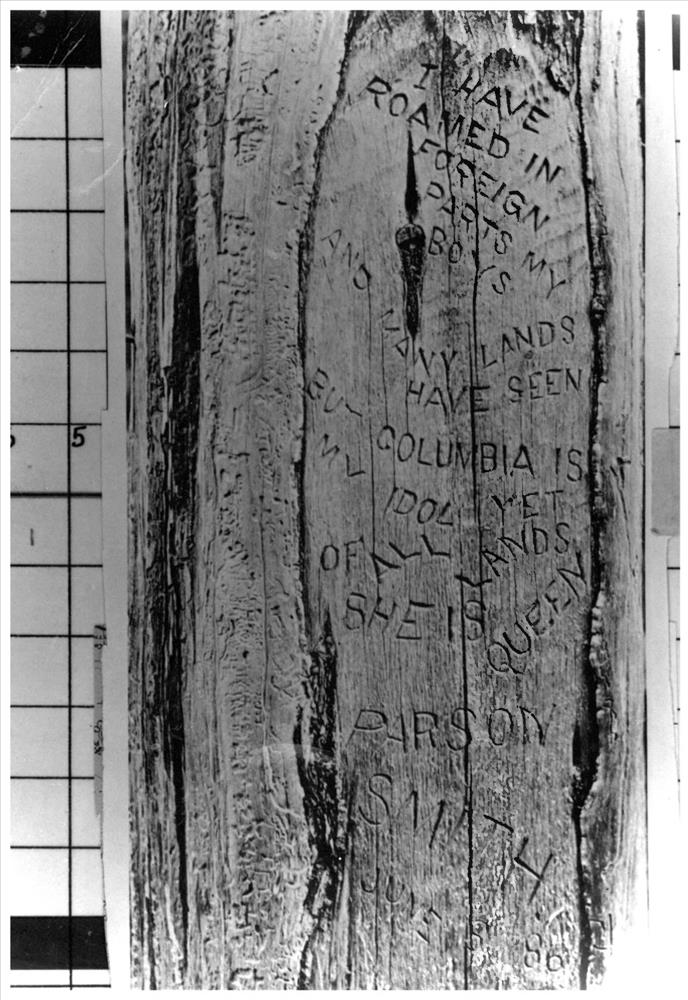 I HAVE
ROAMED IN
FOREIGN
PARTS MY
BOYS
AND MANY LANDS
HAVE SEEN
BUT COLUMBIA IS
MY IDOL YET
OF ALL LANDS
SHE IS QUEEN
PARSON
SMITH
JUNE 8 86
5
1